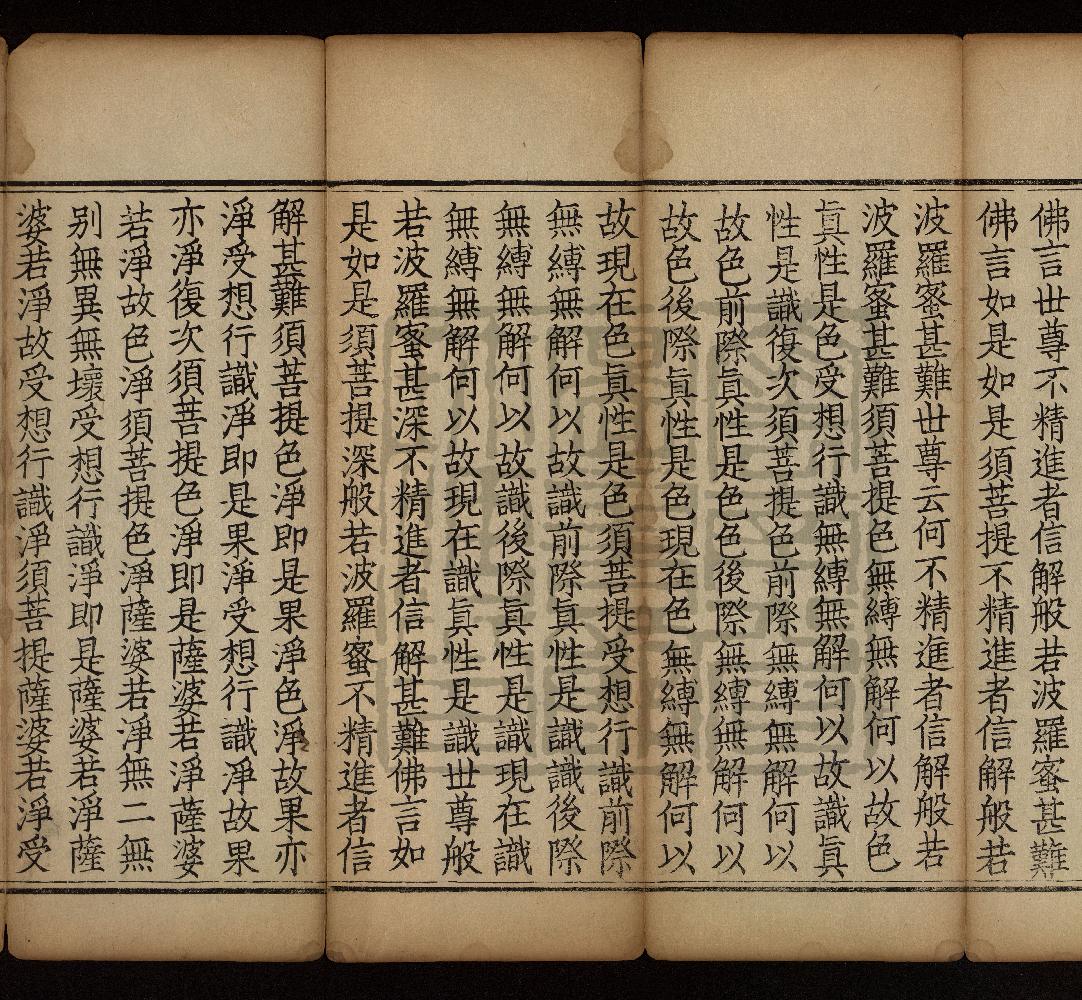 佛言世尊不精進者信解般若波羅蜜甚難
佛言如是如是須菩提不精進者信解般若
波羅蜜甚難世尊云何不精進者信解般若
波羅蜜甚難須菩提色無縛無解何以故色
眞性是色受想行識無縛無解何以故識眞
性是識復次須菩提色前際無縛無解何以
故色前際眞性是色色後際無縛無解何以
故色後際眞性是色現在色無縛無解何以
故現在色眞性是色須菩提受想行識前際
無縛無解何以故識前際眞性是識識後際
無縛無解何以故識後際眞性是識現在識
無縛無解何以故現在識眞性是識世尊般
若波羅蜜甚深不精進者信解甚難佛言如
是如是須菩提深般若波羅蜜不精進者信
解甚難須菩提色淨即是果淨色淨故果亦
淨受想行識淨即是果淨受想行識淨故果
亦淨復次須菩提色淨即是薩婆若淨薩婆
若淨故色淨須菩提色淨薩婆若淨無二無
别無異無壞受想行識淨即是薩婆若淨薩
婆若淨故受想行識淨須菩提薩婆若淨受